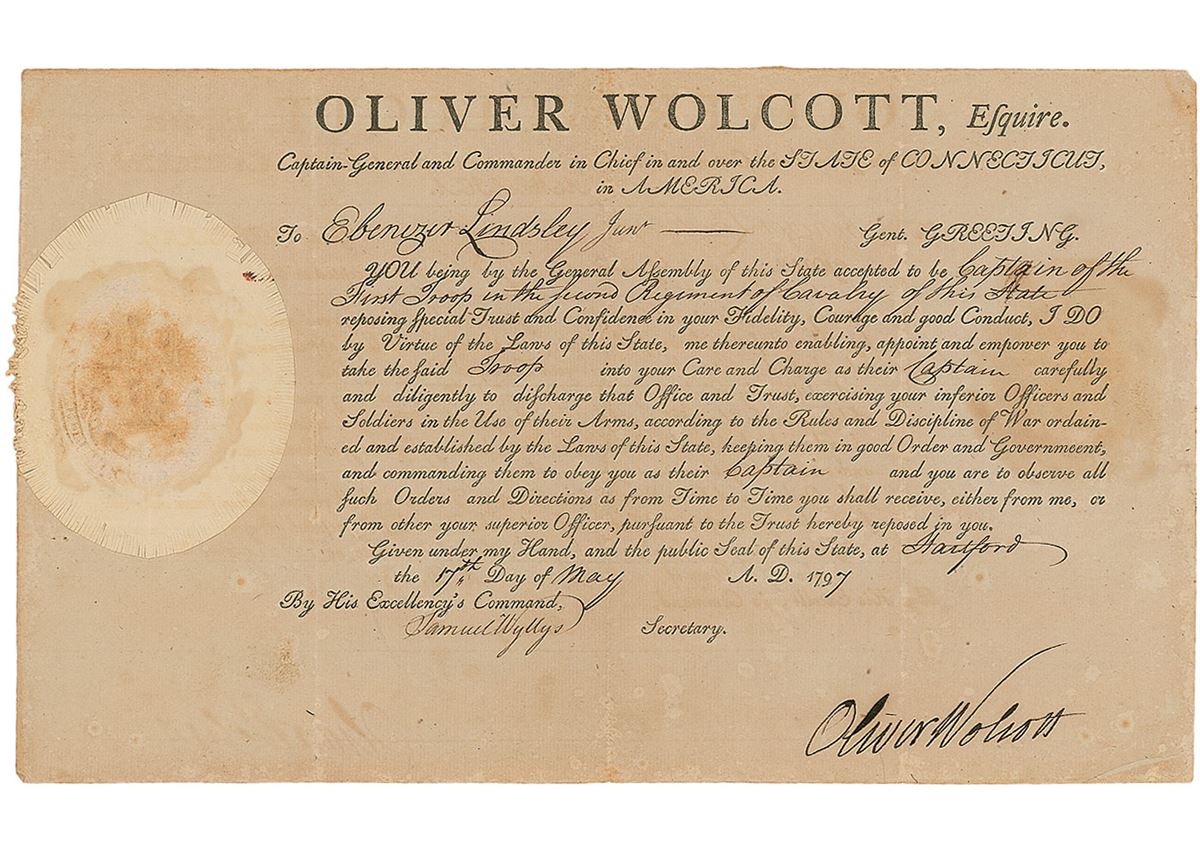 OLIVER WOLCOTT, Eſquire.
Captain-General and Commander in Chief in and over the STATE of CONNECTICUT,
in AMERICA.
To Ebenezer Lindsley Junr Gent. GREETING.
YOU being by the General Aſſembly of this State accepted to be Captain of the
First Troop in the Second Regiment of Cavalry of this State
repoſing ſpecial Truſt and Confidence in your Fidelity, Courage and good Conduct, I DO
by Virtue of the Laws of this State, me thereunto enabling, appoint and empower you to
take the ſaid Troop into your Care and Charge as their Captain carefully
and diligently to diſcharge that Office and Truſt, exerciſing your inferior Officers and
Soldiers in the Uſe of their Arms, according to the Rules and Diſcipline of War ordain-
ed and eſtabliſhed by the Laws of this State, keeping them in good Order and Government,
and commanding them to obey you as their Captain and you are to obſerve all
ſuch Orders and Directions as from Time to Time you ſhall receive, either from me, or
from other your superior Officer, purſuant to the Truſt hereby repoſed in you.
Given under my Hand, and the public Seal of this State, at Hartford
the 17th Day of May A. D. 1797
By His Excellency's Command,
Samuel Wyllys Secretary.
Oliver Wolcott